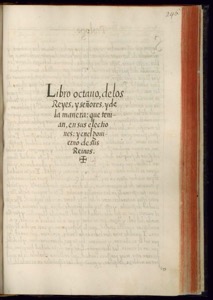 Libro octauo, de los
Reyes, y señores, y de
la manera: que teni
an, en sus electio
nes: y en el goui
erno de sus
Reinos.